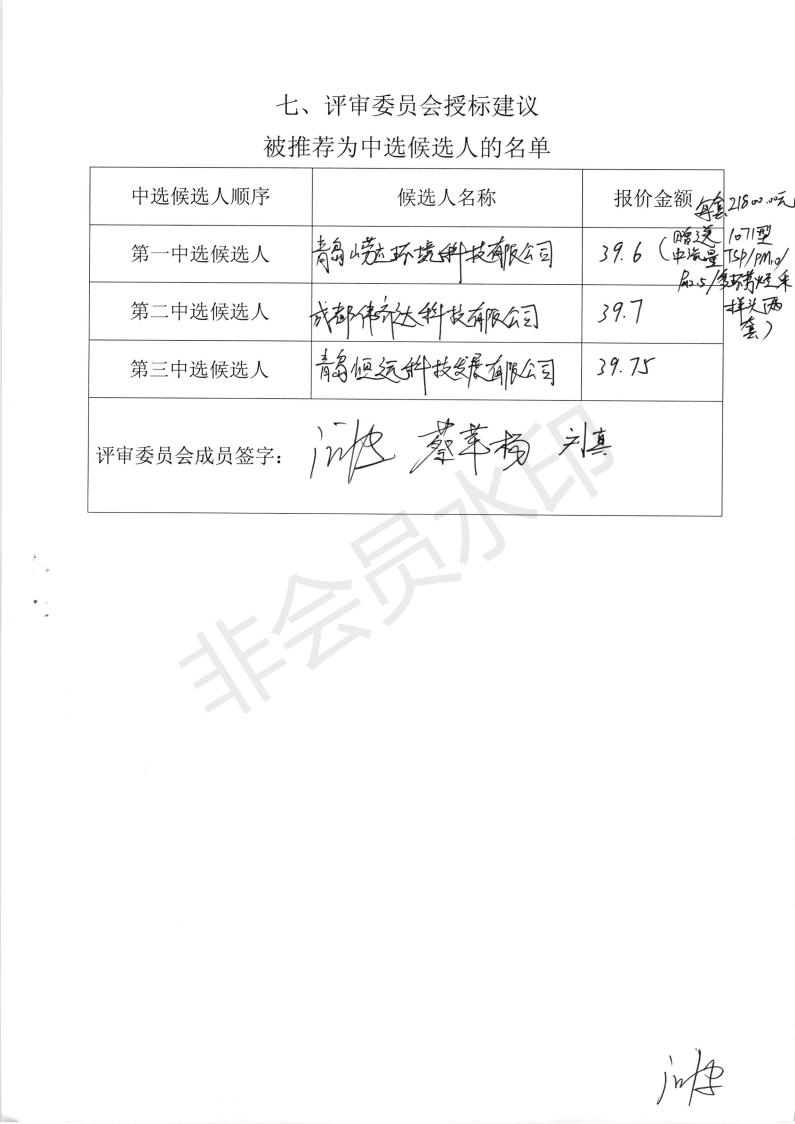 七、评审委员会授标建议
被推荐为中选候选人的名单
中选候选人顺序 候选人名称 报价金额 每套21800.00元
第一中选候选人 青岛崂应环境科技有限公司 39.6 (赠送1071型
中流量TSP/PM10/
PM2.5/多环芳烃采
样头两
套)
第二中选候选人 成都伟齐达科技有限公司 39.7
第三中选候选人 青岛恒远科技发展有限公司 39.75
评审委员会成员签字: 刘真
非会员水印